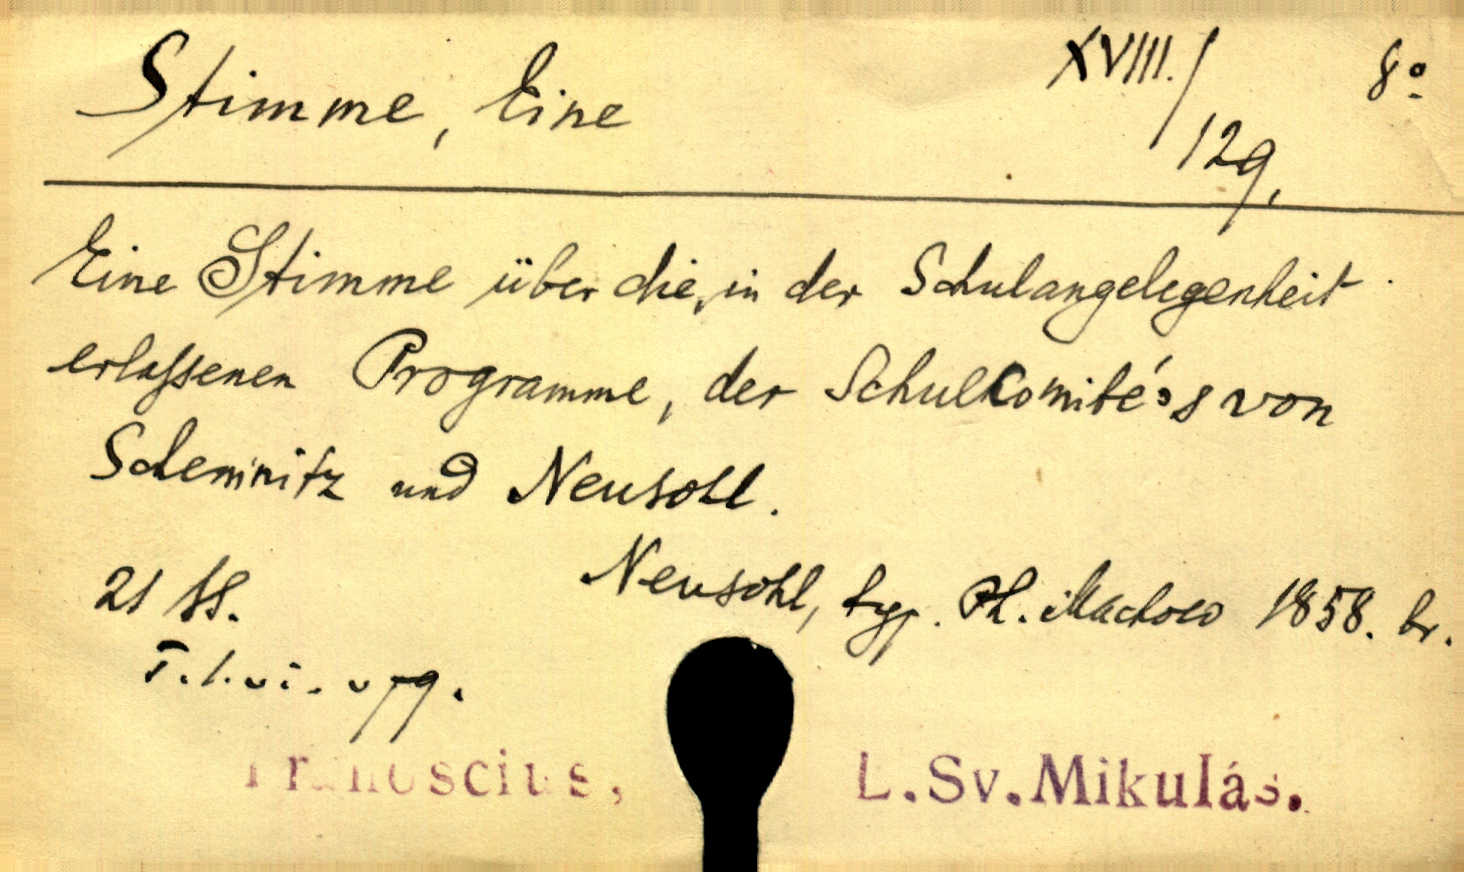 Stimme, Eine
XVIII./129.
8º
Eine Stimme über die, in der Schulangelegenheit
erlaſsenen Programme, der Schulkomité's von
Schemnitz und Neusohl.
21 SS.
Neusohl, typ. Ph. Machold 1858. br.
Tranoscius, L. Sv. Mikuláš.